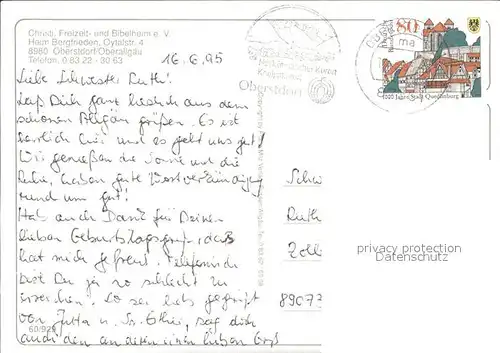 Christl. Freizeit- und Bibelheim e. V.
Haim Bergfrieden, Oytalstr. 4
8980 Oberstdorf/Oberallgäu
Telefon 0 83 22 - 30 63
16.6.95
Liebe Schwester Ruth!
Laß Dich ganz herzlich aus dem
schönen Allgäu grüßen. Es ist
herrlich hier und es geht uns gut!
Wir genießen die Sonne und die
Ruhe, haben gute Wortverkündigung
rund um gut!
Hab auch Dank für Deinen
lieben Geburtstagsgruß, das
hat mich gefreut. Telefonisch
bist Du ja so schlecht zu
erreichen. So sei lieb gegrüßt
von Jutta u. Sr. , sag bitte
auch den anderen einen lieben Gruß
60/929
Oberstdorf
80
1000 Jahre Stadt Quedlinburg
Schw
Ruth
Zoll
89077
privacy protection
Datenschutz